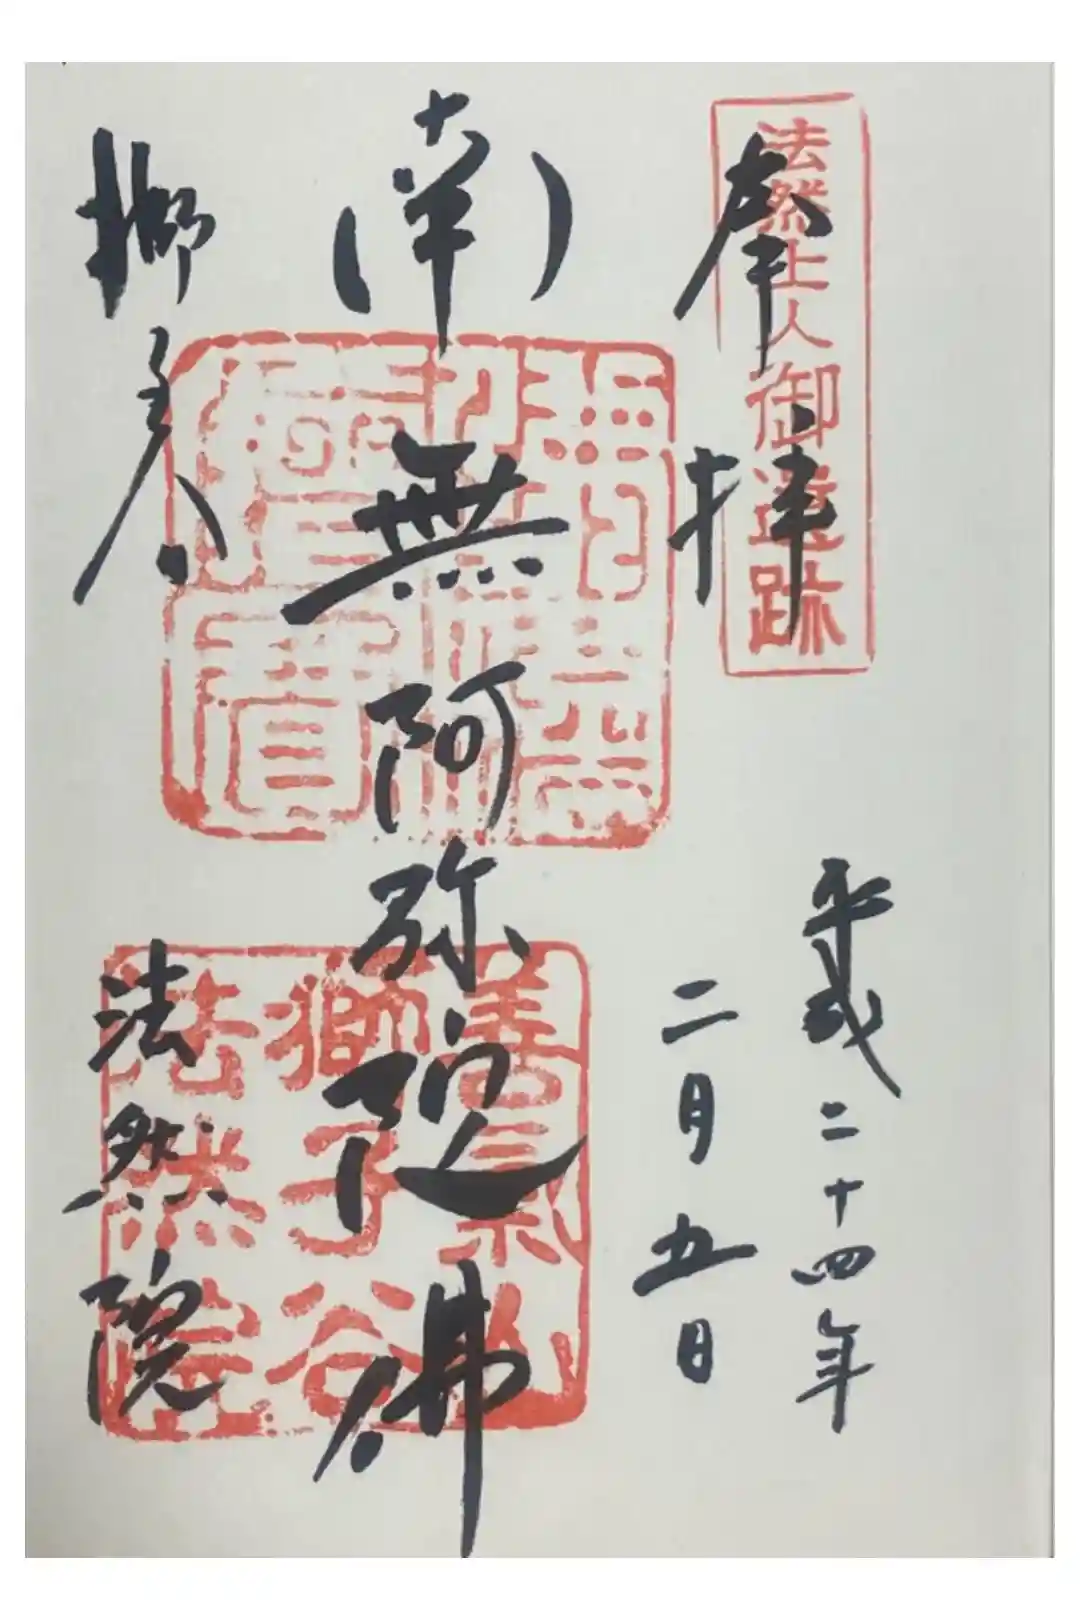 法然上人御遺跡
奉拝
平成二十四年
二月五日
南無阿弥陀佛
獅子谷
法然院
善氣山
獅子谷
法然院